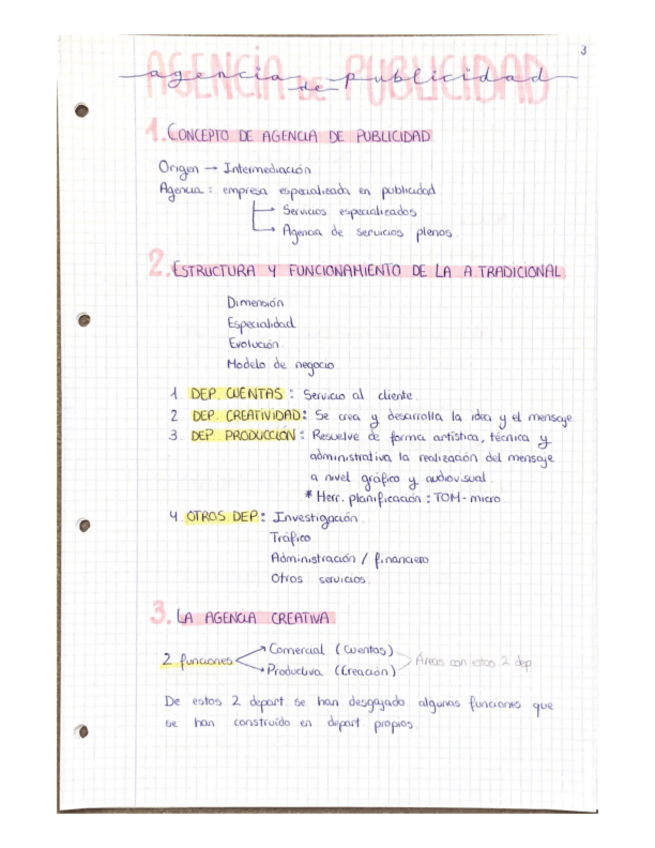 3
AGENCIA DE PUBLICIDAD
agencia de publicidad
1. CONCEPTO DE AGENCIA DE PUBLICIDAD
Origen → Intermediación
Agencia : empresa especializada en publicidad.
→ Servicios especializados
→ Agencia de servicios plenos.
2. ESTRUCTURA Y FUNCIONAMIENTO DE LA A TRADICIONAL.
Dimensión
Especialidad
Evolución
Modelo de negocio
1 DEP. CUENTAS : Servicio al cliente.
2 DEP. CREATIVIDAD: Se crea y desarrolla la idea y el mensaje
3 DEP PRODUCCIÓN : Resuelve de forma artística, técnica y
administrativa la realización del mensaje
a nivel gráfico y audiovisual.
* Herr. planificación : TOM - micro
4 OTROS DEP: Investigación.
Tráfico
Administración / financiero
Otros servicios.
3. LA AGENCIA CREATIVA
2 funciones
Comercial (Cuentas)
Productiva (Creación)
Áreas con estos 2 dep
De estos 2 depart se han desgajado algunas funciones que
se han construido en depart. propios.